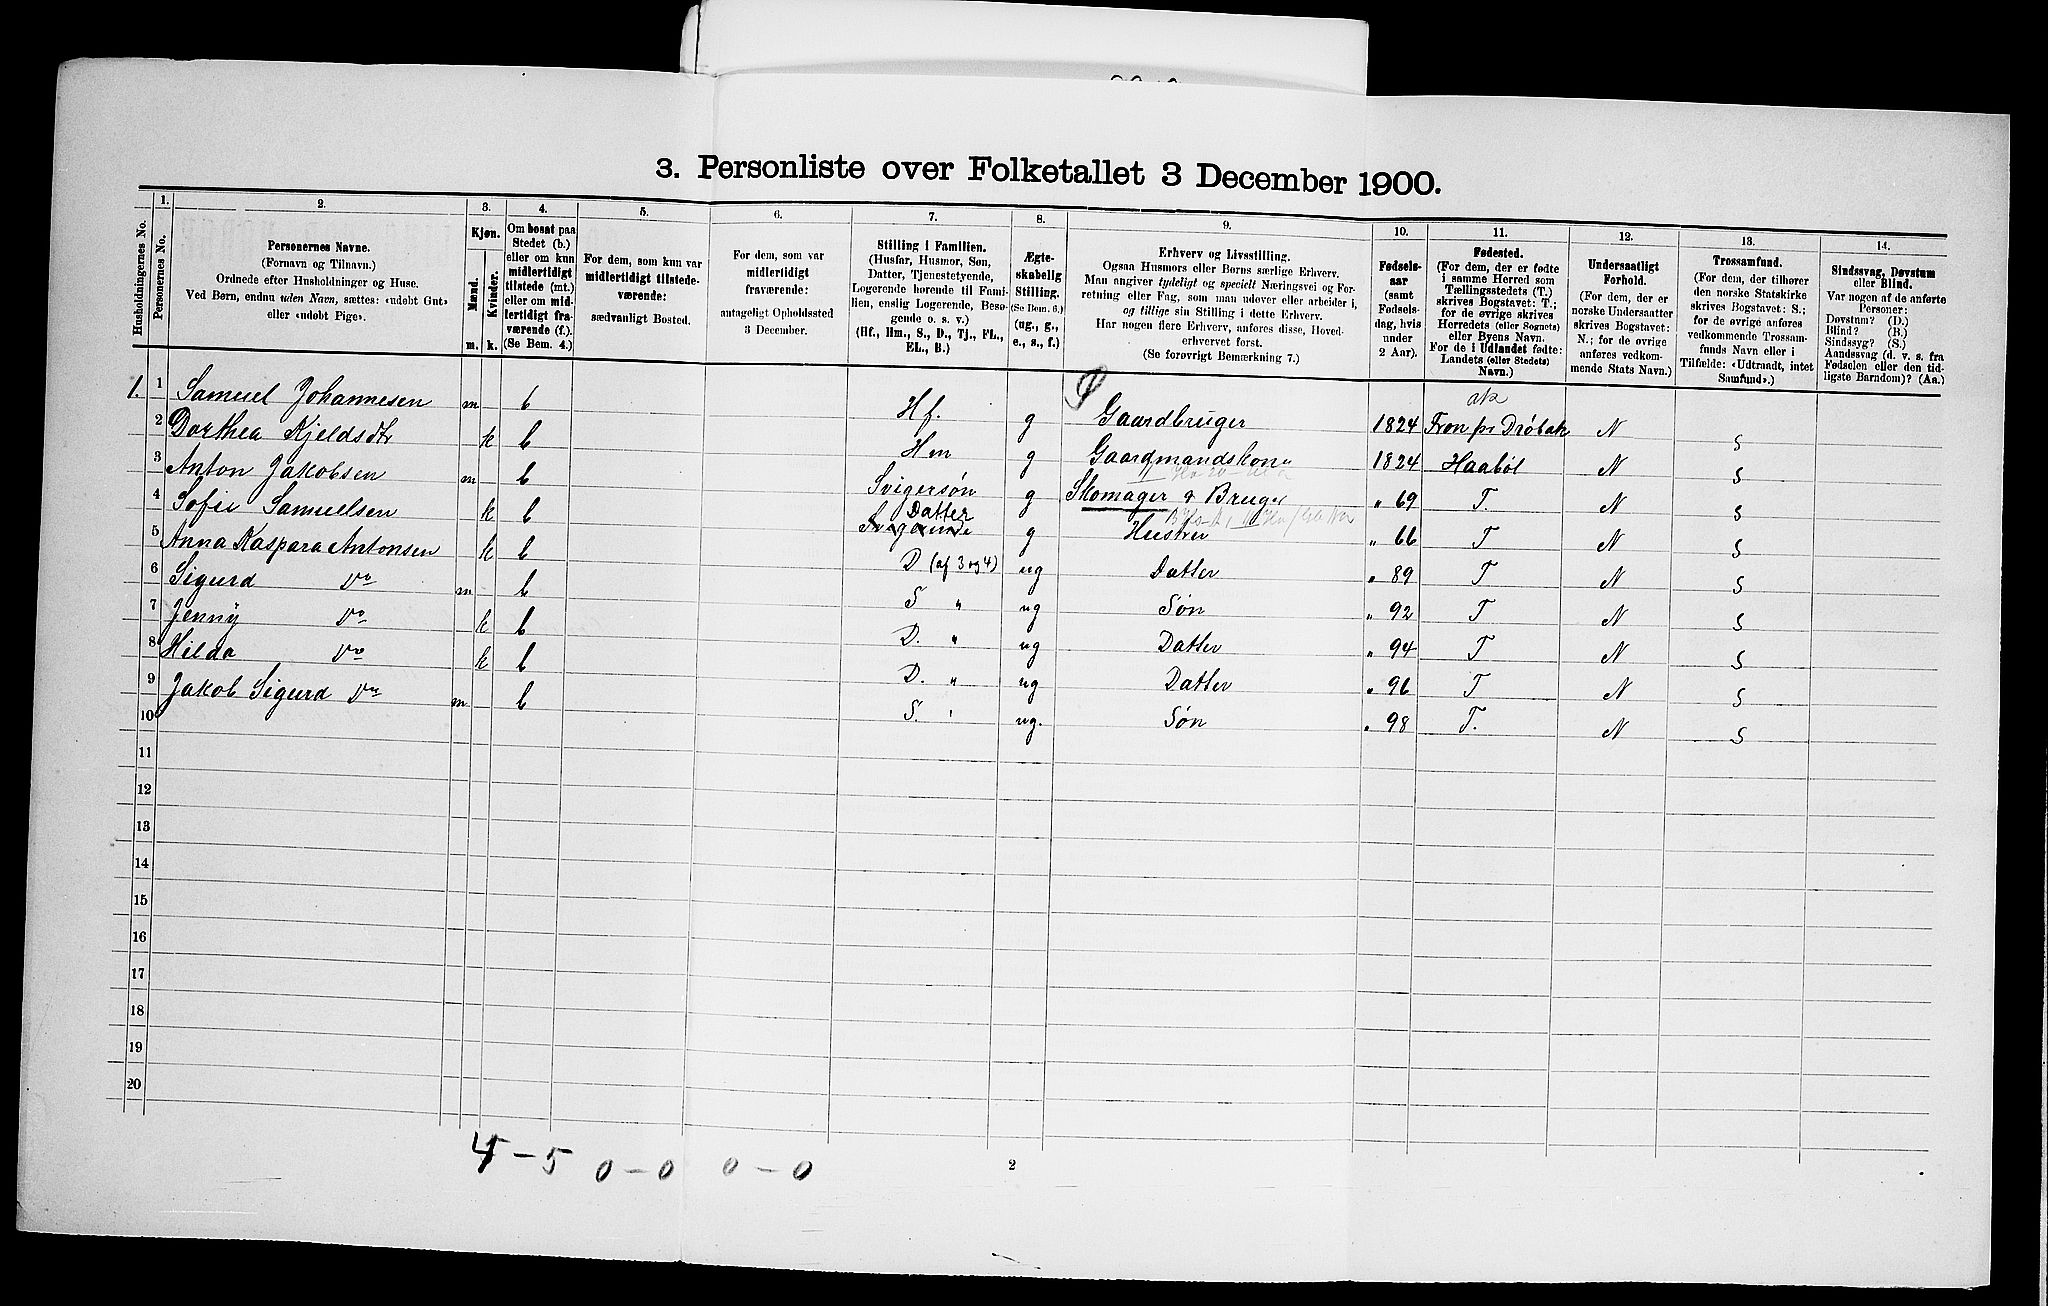 3. Personliste over Folketallet 3 December 1900.
Husholdningernes No.
1. Personernes No.
2. Personernes Navne.
(Fornavn og Tilnavn.)
Ordnede efter Husholdninger og Huse.
Ved Børn, endnu uden Navn, sættes: «udøbt Gut»
eller «udøbt Pige».
3. Kjøn.
Mænd. m.
Kvinder. k.
4. Om bosat paa
Stedet (b.)
eller om kun
midlertidigt
tilstede (mt.)
eller om mid-
lertidigt fra-
værende (f.).
(Se Bem. 4.)
5. For dem, som kun var
midlertidigt tilstede-
værende:
sædvanligt Bosted.
6. For dem, som var
midlertidigt
fraværende:
antageligt Opholdssted
3 December.
7. Stilling i Familien.
(Husfar, Husmor, Søn,
Datter, Tjenestetyende,
Logerende hørende til Fami-
lien, enslig Logerende, Besø-
gende o. s. v.)
(Hf., Hm., S., D., Tj., FL.,
EL., B.)
8. Ægte-
skabelig
Stilling.
(Se Bem. 6.)
(ug., g.,
e., s., f.)
9. Erhverv og Livsstilling.
Ogsaa Husmors eller Børns særlige Erhverv.
Man angiver tydeligt og specielt Næringsvei og For-
retning eller Fag, som man udøver eller arbeider i,
og tillige sin Stilling i dette Erhverv.
Har nogen flere Erhverv, anføres disse, Hoved-
erhvervet først.
(Se forøvrigt Bemærkning 7.)
10. Fødsels-
aar
(samt
Fødsels-
dag, hvis
under
2 Aar).
11. Fødested.
(For dem, der er fødte
i samme Herred som
Tællingsstedets (T.)
skrives Bogstavet: T.;
for de øvrige skrives
Herredets (eller Sognets)
eller Byens Navn.
For de i Udlandet fødte:
Landets (eller Stedets)
Navn.)
12. Undersaatligt
Forhold.
(For dem, der er
norske Undersaatter
skrives Bogstavet:
N.; for de øvrige
anføres vedkom-
mende Stats Navn.)
13. Trossamfund.
(For dem, der tilhører
den norske Statskirke
skrives Bogstavet: S.;
for de øvrige anføres
vedkommende Trossam-
funds Navn eller i
Tilfælde: «Udtraadt, intet
Samfund».)
14. Sindssvag, Døvstum
eller Blind.
Var nogen af de anførte
Personer:
Døvstum? (D.)
Blind? (B.)
Sindssyg? (S.)
Aandssvag (d. v. s. fra
Fødselen eller den tid-
ligste Barndom)? (Aa.)
1. 1 Samuel Johannesen m b Hf. g Gaardbruger 1824 Fron pr Drøbak N S
2 Dorthea Kjeldsdtr k b Hm g Gaardmandskone 1824 Haabøl N S
3 Anton Jakobsen m b Svigersøn g Skomager & Bruger " 69 T. N S
4 Sofie Samuelsen k b Datter g Hustru " 66 T N S
5 Anna Kaspara Antonsen k b D (af 3 og 4) ug Datter " 89 T N S
6 Sigurd Do m b S " ug Søn " 92 T N S
7 Jenny Do k b D. " ug Datter " 94 T N S
8 Hilda Do k b D. " ug Datter " 96 T N S
9 Jakob Sigurd Do m b S. " ug. Søn " 98 T. N S
10
11
12
13
14
15
16
17
18
19
20
4 – 5 0 – 0 0 – 0
2